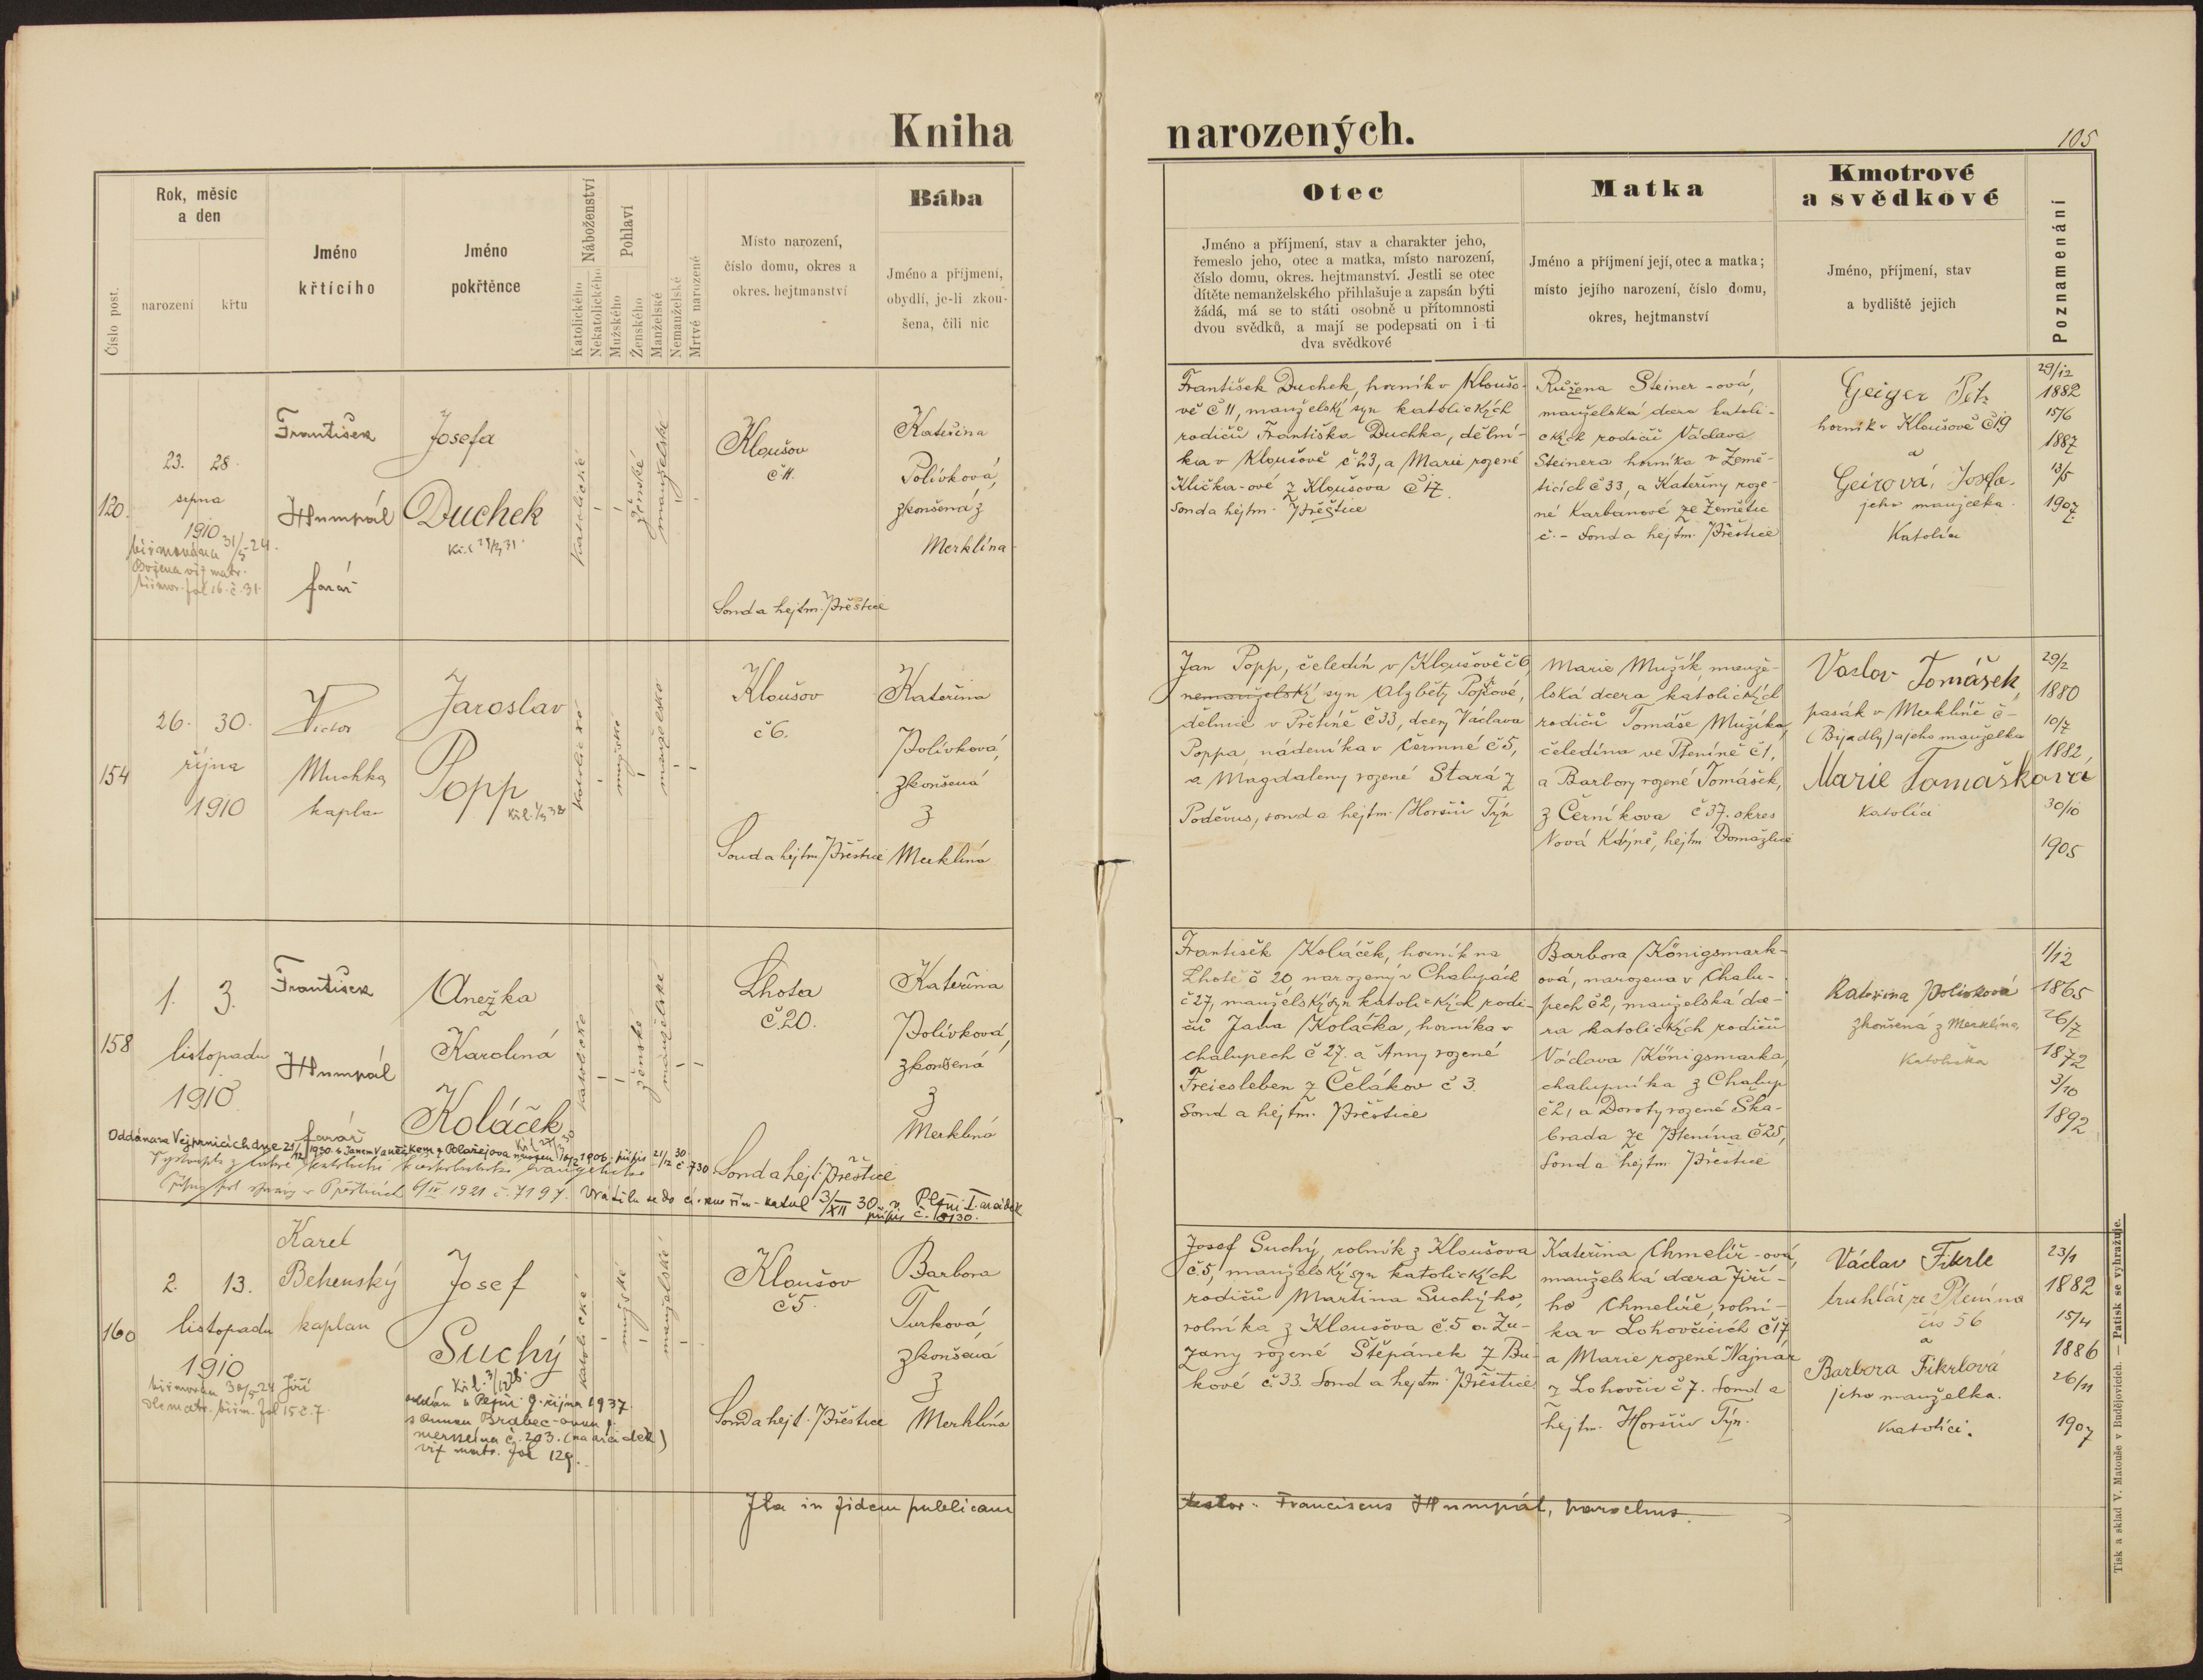 Kniha
narozených.
105
Číslo post.
Rok, měsíc
a den
narození
křtu
Jméno
křtícího
Jméno
pokřtěnce
Náboženství
Katolického
Nekatolického
Pohlaví
Mužského
Ženského
Manželské
Nemanželské
Mrtvě narozené
Místo narození,
číslo domu, okres a
okres. hejtmanství
Bába
Jméno a příjmení,
obydlí, je-li zkou-
šena, čili nic
Otec
Jméno a příjmení, stav a charakter jeho,
řemeslo jeho, otec a matka, místo narození,
číslo domu, okres. hejtmanství. Jestli se otec
dítěte nemanželského přihlašuje a zapsán býti
žádá, má se to státi osobně u přítomnosti
dvou svědků, a mají se podepsati on i ti
dva svědkové
Matka
Jméno a příjmení její, otec a matka;
místo jejího narození, číslo domu,
okres, hejtmanství
Kmotrové
a svědkové
Jméno, příjmení, stav
a bydliště jejich
Poznamenání
120.
23. 28.
srpna
1910
biřmována 31/5 24.
Božena viz matr.
biřmov. fol 16. č. 31.
František
Humpál
farář
Josefa
Duchek
katolické
ženské
manželské
Kloušov
č 11.
Soud a hejtm. Přeštice
Kateřina
Polívková,
zkoušená z
Merklína
František Duchek, horník v Kloušo-
vě č 11, manželský syn katolických
rodičů Františka Duchka, dělní-
ka v Kloušově č 23, a Marie rozené
Klička-ové z Kloušova č 17.
Soud a hejtm. Přeštice
Růžena Steiner-ová,
manželská dcera katoli-
ckých rodičů Václava
Steinera horníka v Země-
ticích č 33, a Kateřiny roze-
né Karbanové ze Zemětic
č. - Soud a hejtm. Přeštice
Geiger Petr
horník v Kloušově č 19
a
Geirová, Josefa.
jeho manželka.
Katolíci
29/12
1882
15/6
1887
13/5
1907.
154
26. 30.
října
1910
Victor
Muchka
kaplan
Jaroslav
Popp
katolické
mužské
manželské
Kloušov
č 6.
Soud a hejtm Přeštice
Kateřina
Polívková,
zkoušená
z
Merklína
Jan Popp, čeledín v Kloušově č 6,
nemanželský syn Alžběty Poppové,
dělnice v Pteníně č 33, dcery Václava
Poppa, nádeníka v Čermné č 5,
a Magdaleny rozené Stará z
Poděvus, soud a hejtm. Horšův Týn
Marie Mužík, manže-
lská dcera katolických
rodičů Tomáše Mužíka,
čeledína ve Pteníně č 1,
a Barbory rozené Tomášek,
z Černíkova č 37. okres
Nová Kdyně, hejtm Domažlice
Vaslav Tomášek,
pasák v Merklíně č -
(Bijadly) a jeho manželka
Marie Tomášková
katolíci
29/2
1880
10/7
1882,
30/10
1905
158
1. 3.
listopadu
1910
František
Humpál
farář
Anežka
Karolina
Koláček
katolické
ženské
manželské
Lhota
č. 20.
Soud a hejt. Přeštice
Kateřina
Polívková,
zkoušená
z
Merklína
František Koláček, horník na
Lhotě č 20 narozený v Chalupách
č 27, manželský syn katolických rodi-
čů Jana Koláčka, horníka v
chalupech č 27. a Anny rozené
Freiesleben z Čelákov č 3.
Soud a hejtm. Přeštice
Barbora Königsmark-
ová, narozena v Chalu-
pech č 2, manželská dce-
ra katolických rodičů
Václava Königsmarka,
chalupníka z Chalup
č 2, a Doroty rozené Ska-
brada ze Ptenína č 25,
Soud a hejtm Přeštice
Kateřina Polívková
zkoušená z Merklína,
Katolička
1/12
1865
26/7
1872
3/10
1892
Oddána ve Vejprnicích dne 21/12 1930 s Janem Vaněčkem z Polažejova
6/IV 1921 č. 7197. Vrátila se do církve řím-katol 3/XII 30 v Plzni I.
160
2. 13.
listopadu
1910
biřmován 30/5 24 Jiří
dle matr. biřm. fol 15 č. 7.
Karel
Behenský
kaplan
Josef
Suchý
oddán v Plzni 9. října 1937.
s Annou Brabec-ovou z
Merklína č. 203.
viz matr. fol 129.
katolické
mužské
manželské
Kloušov
č 5.
Soud a hejt. Přeštice
Barbora
Turková,
zkoušená
z
Merklína
Josef Suchý, rolník z Kloušova
č. 5, manželský syn katolických
rodičů Martina Suchýho,
rolníka z Kloušova č. 5 a Zu-
zany rozené Štěpánek z Bu-
kové č. 33. Soud a hejtm. Přeštice
Kateřina Chmelíř-ová,
manželská dcera Jiří-
ho Chmelíře, rolní-
ka v Lohovčicích č 17,
a Marie rozené Najnár
z Lohovčic č 7. Soud a
hejtm. Horšův Týn.
Václav Fikrle
truhlář ze Ptenína
čís 56
a
Barbora Fikrlová
jeho manželka.
Katolíci.
23/1
1882
15/4
1886
26/11
1907
Ita in fidem publicam
testor: Franciscus Humpál, parochus.
Tisk a sklad V. Matouše v Budějovicích. — Patisk se vyhražuje.